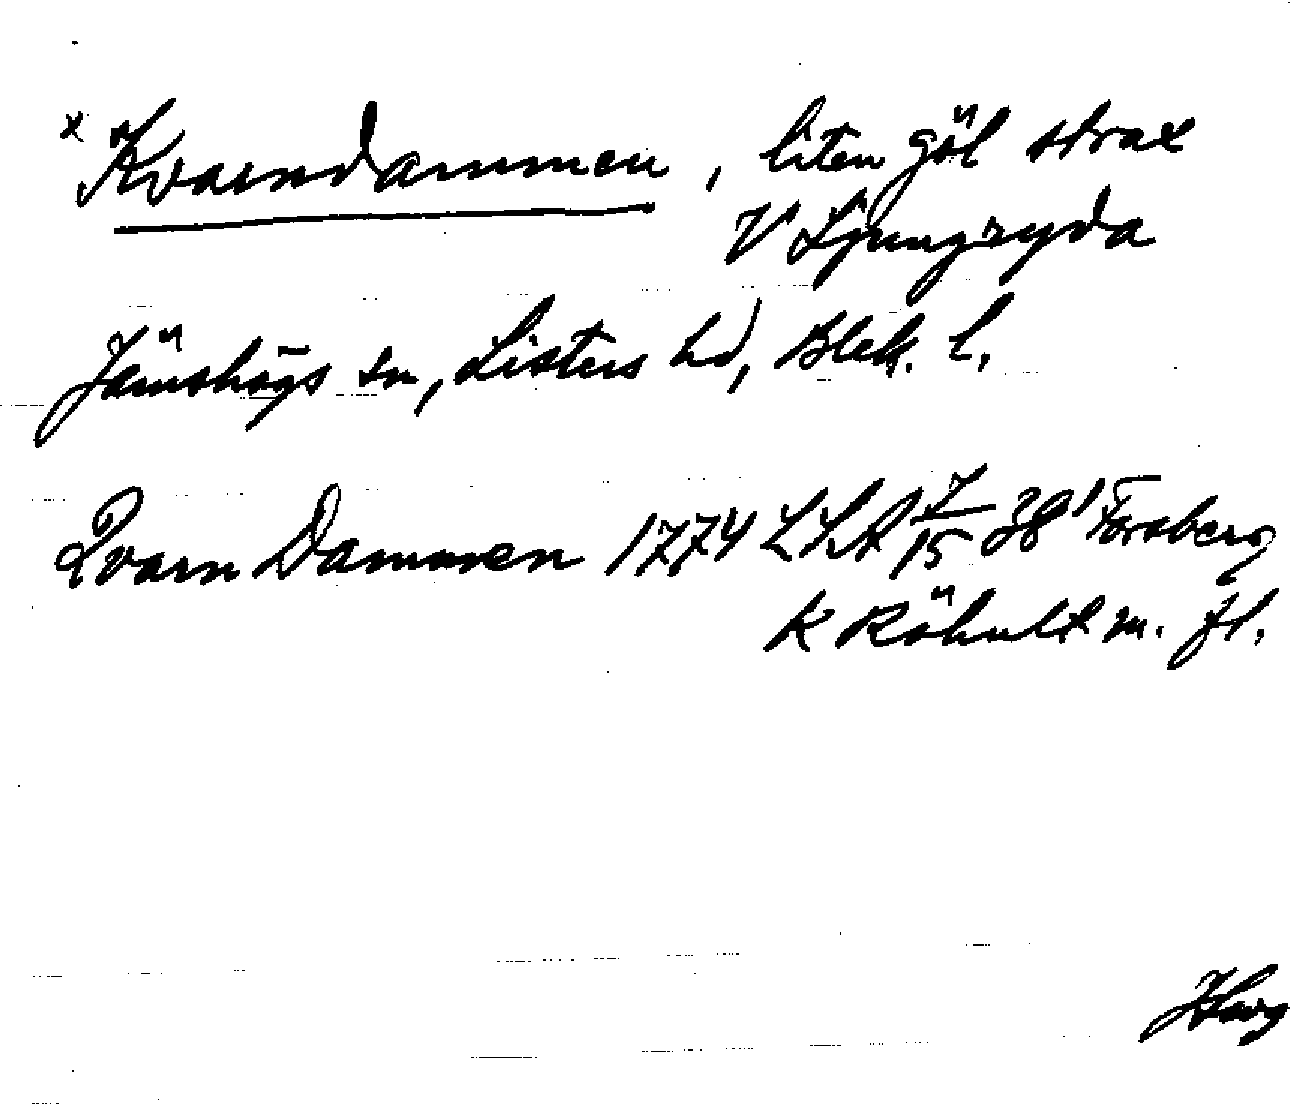 x Kvarndammen, liten göl strax
V Ljungryda
Jämshögs sn, Listers hd, Blek. l.
Qvarn Dammen 1774 LSA 7/15 38¹ Forsberg
K Röhult m. fl.